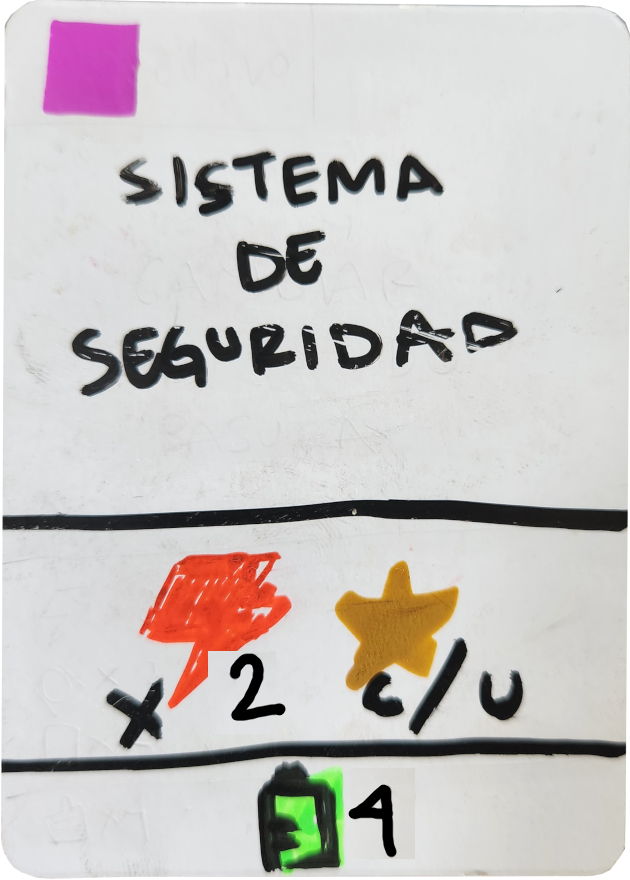 SISTEMA
DE
SEGURIDAD
X 2 c/u
4